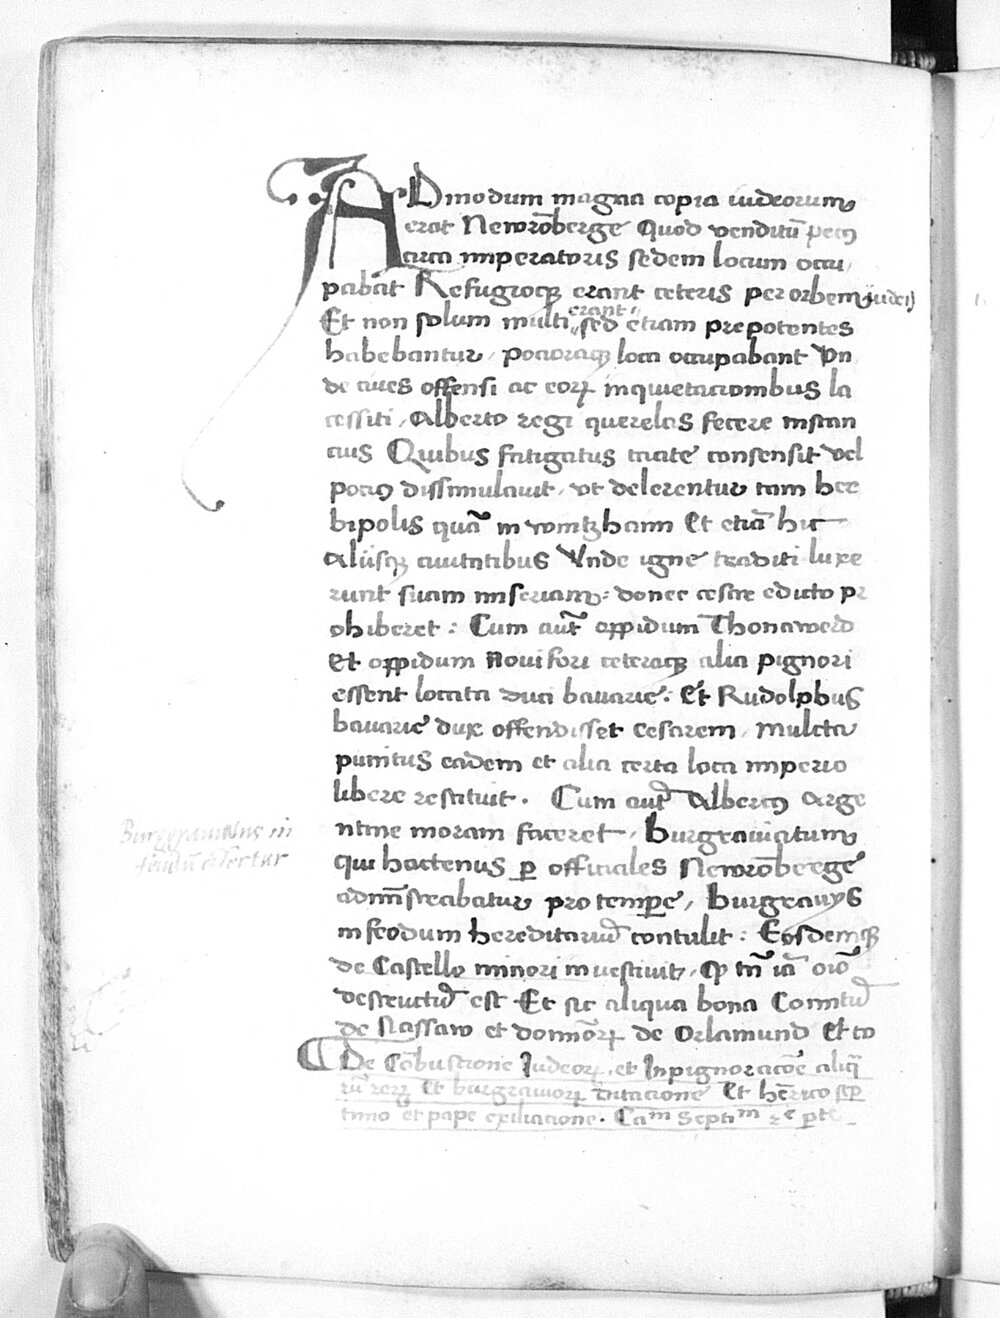 ADmodum magna copia iudeorum
erat Newrōberge Quod venditū pecꝯ
circa imperatoris sedem locum occu
pabāt Refugiocqꝫ erant ceteris per orbem iudeis
Et non solum multi erant sed etiam prepotentes
habebantur, pocioraqꝫ loca occupabant Vn
de ciues offensi ac eoꝝ inquietacionibus la
cessiti, Alberto regi querelas fecere instan
cius Quibus fatigatus tacite consensit vel
pociꝯ dissimulauit, vt delerentur tam her
bipolis quā in wintzhaim Et etiā hic
Alijsqꝫ ciuitatibus Vnde igne traditi luxe
runt suam miseriam: donec cesare edicto pr
ohiberet: Cum aūt oppidum Thonawerd
Et oppidum Noui fori ceteraqꝫ alia pignori
essent locata duci bauarie: Et Rudolphus
bauarie dux offendisset cesarem, Mulcta
punitus eadem et alia certa loca imperio
libere restituit. Cum aūt Albertꝯ Arge
ntine moram faceret, burgrauiatum
qui hactenus ꝑ officiales Newrōberge
admīstrabatur pro tempore, burgrauys
in feodum hereditariū contulit: Eosdemqꝫ
de Castello minori inuestiuit, qꝫ tn̄ iā oīo
destructū est Et sic aliqua bona Comitū
de Nassaw et domīoꝝ de Orlamund Et co
De Cōbustione Iudeoꝝ, et Inpignoracōe aliq
rū reꝝ Et burgrauioꝝ ditacione Et hēnrico sep
timo et pape exiliacione. Caᵐ Septiᵐ 2ᵉ ꝑtꝭ
Burggrauiatus in
feudū cōfertur